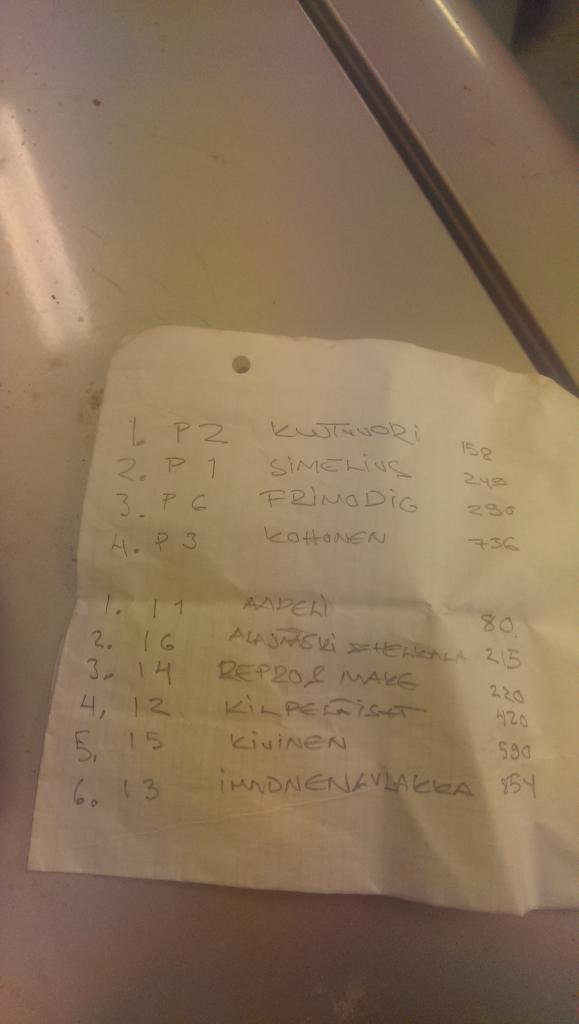 1. P2 KUUTVUORI 158
2. P1 SIMELIUS 249
3. P6 FRIMODIG 290
4. P3 KOHONEN 736
1. 11 AADELI 80.
2. 16 215
3. 14 REPRO & MAKE 220
4, 12 KILPELÄISET 420
5. 15 KIVINEN 590
6. 13 IMMONEN & VLAKKA 854